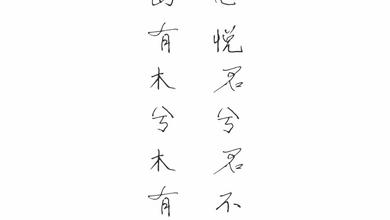 有木兮木有
悦君兮君不